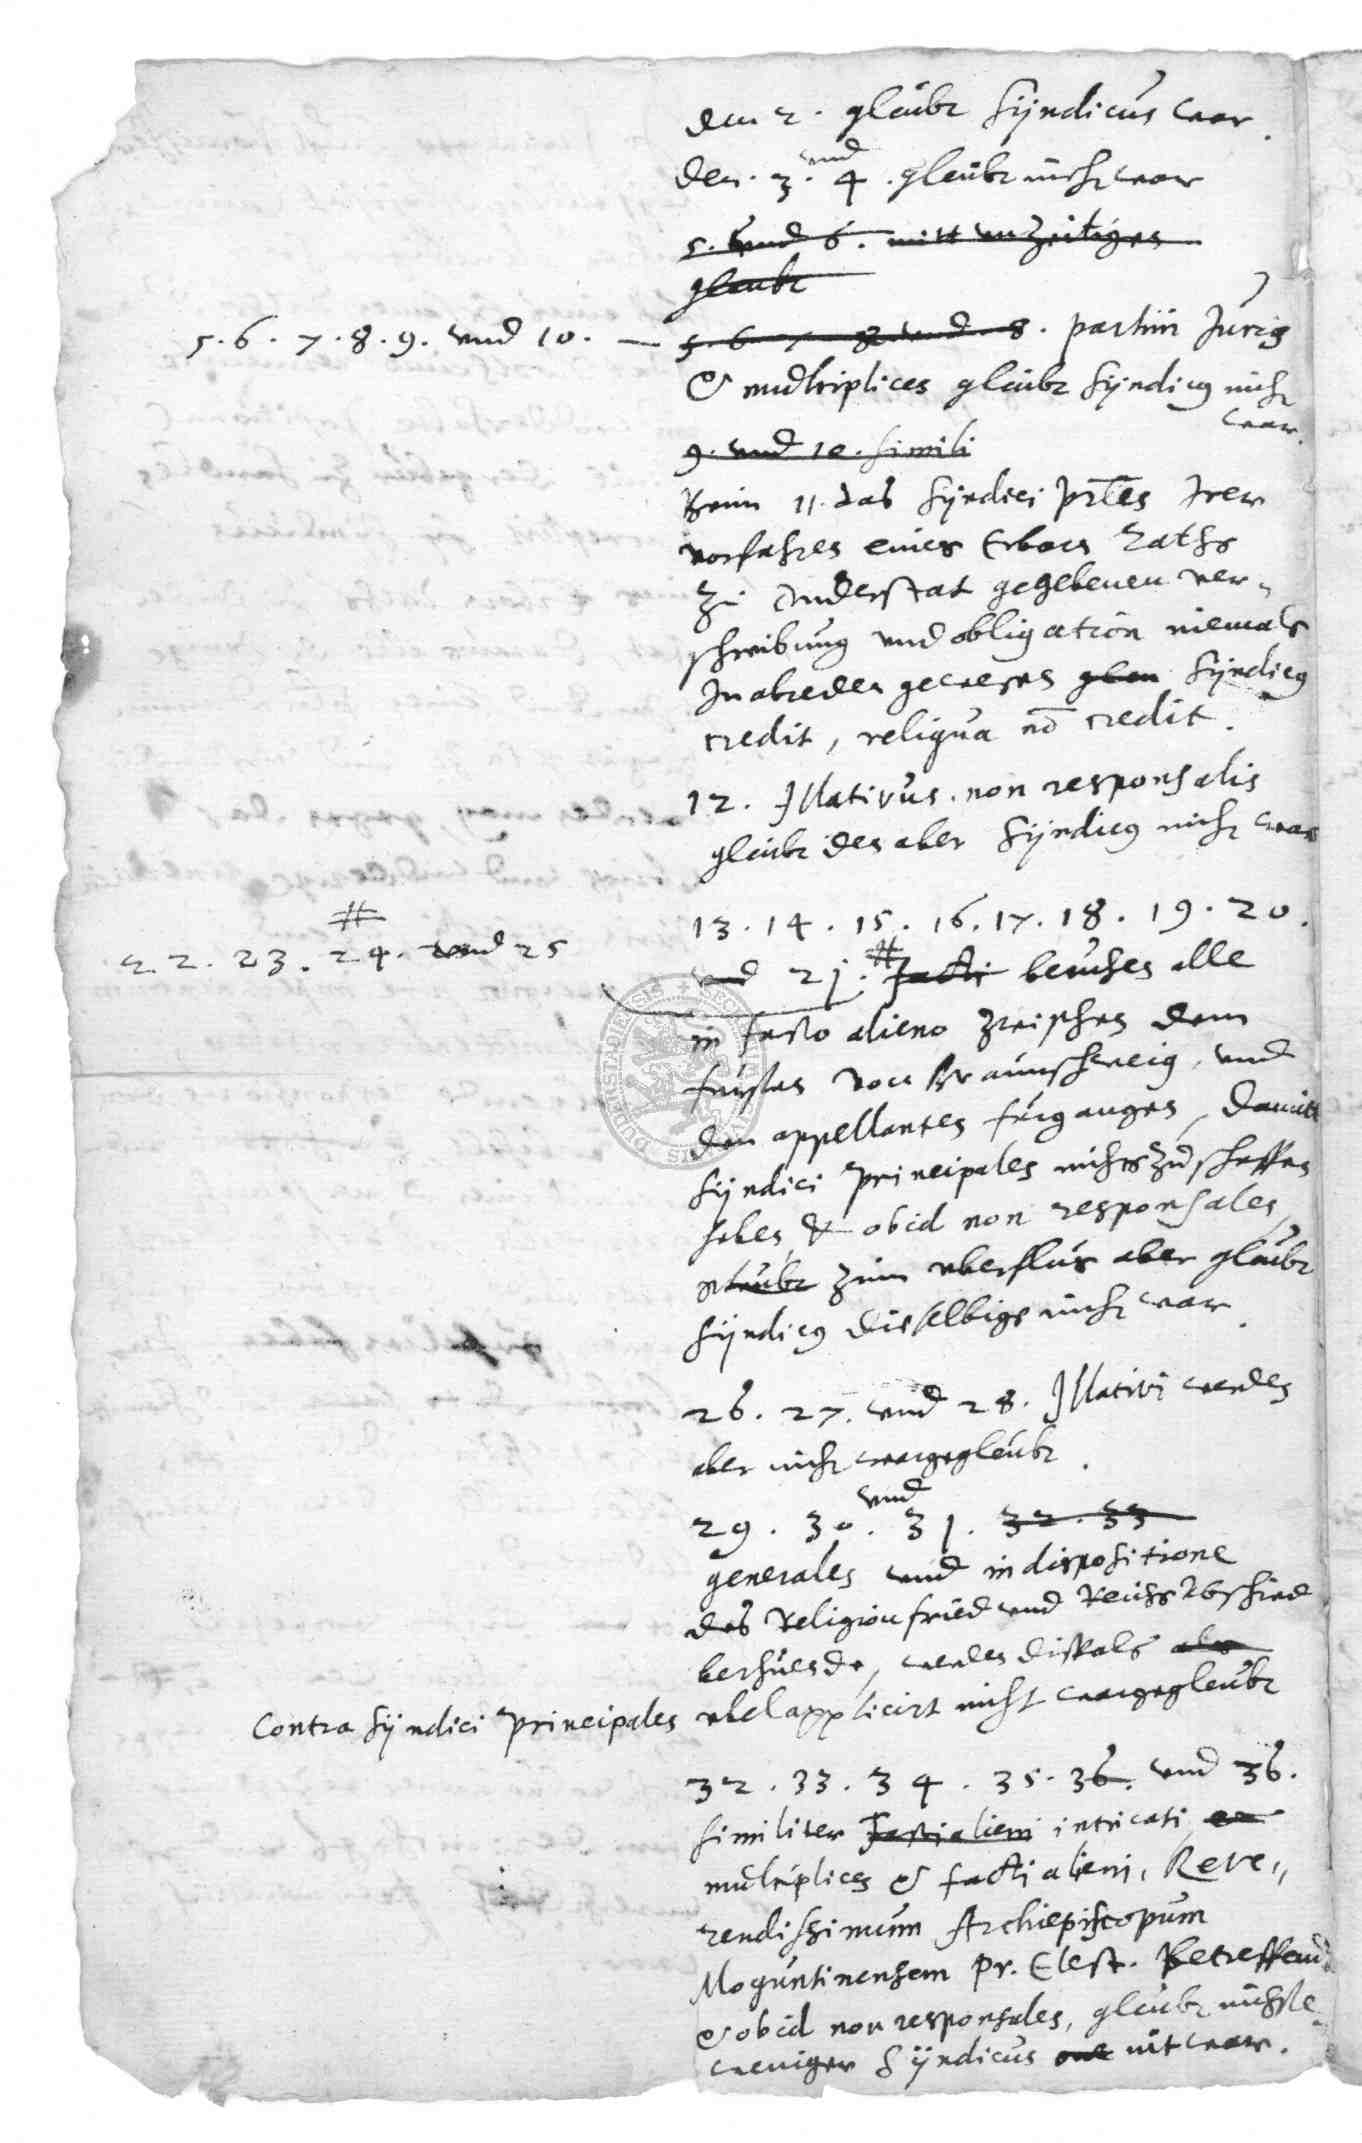 den 2. gleubt Syndicus war.
den. 3. und 4. gleubt nicht war
5. und 6. mitt unzeitiges
gleubt
5. 6. 7. 8. 9. und 10. — 5. 6. 7. 8 und 8. partim Juris
& multiplices gleubt Syndicus nicht
war.
9. und 10. simili
Beim 11. das Syndici principales Irer
vorfahren eines Erbarn Raths
zu Duderstat gegebenen ver-
schreibung und obligation niemals
In abreden gewesen glau Syndicus
credit, reliqua non credit.
12. Illativus. non responsalis
gleubt den aber Syndicus nicht war
13. 14. 15. 16. 17. 18. 19. 20.
#
22. 23. 24. und 25
und 21. # facti beruhen alle
in facto alieno zwischen dem
fursten von Braunschweig, und
den appellanten furgangen, damitt
Syndici Principales nichts zu schaffen
haben, & ob id non responsales,
gleubt zum uberflus aber gleubt
Syndicus disselbige nicht war.
26. 27. und 28. Illativi werden
aber nicht wargegleubt.
29. 30. und 31. 32. 33
generales und in dispositione
des Religion fried und Reichs Abschied
beruhende, werden disfals als
Contra Syndici Principales ubel applicirt nicht wargegleubt
32. 33. 34. 35. 36. und 36.
similiter facti alieni intricati, et
multiplices & facti alieni, Reve-
rendissimum Archiepiscopum
Moguntinensem Pr. Elect. Betreffend
& ob id non responsales, gleubt nichtsde
weniger Syndicus nit war.